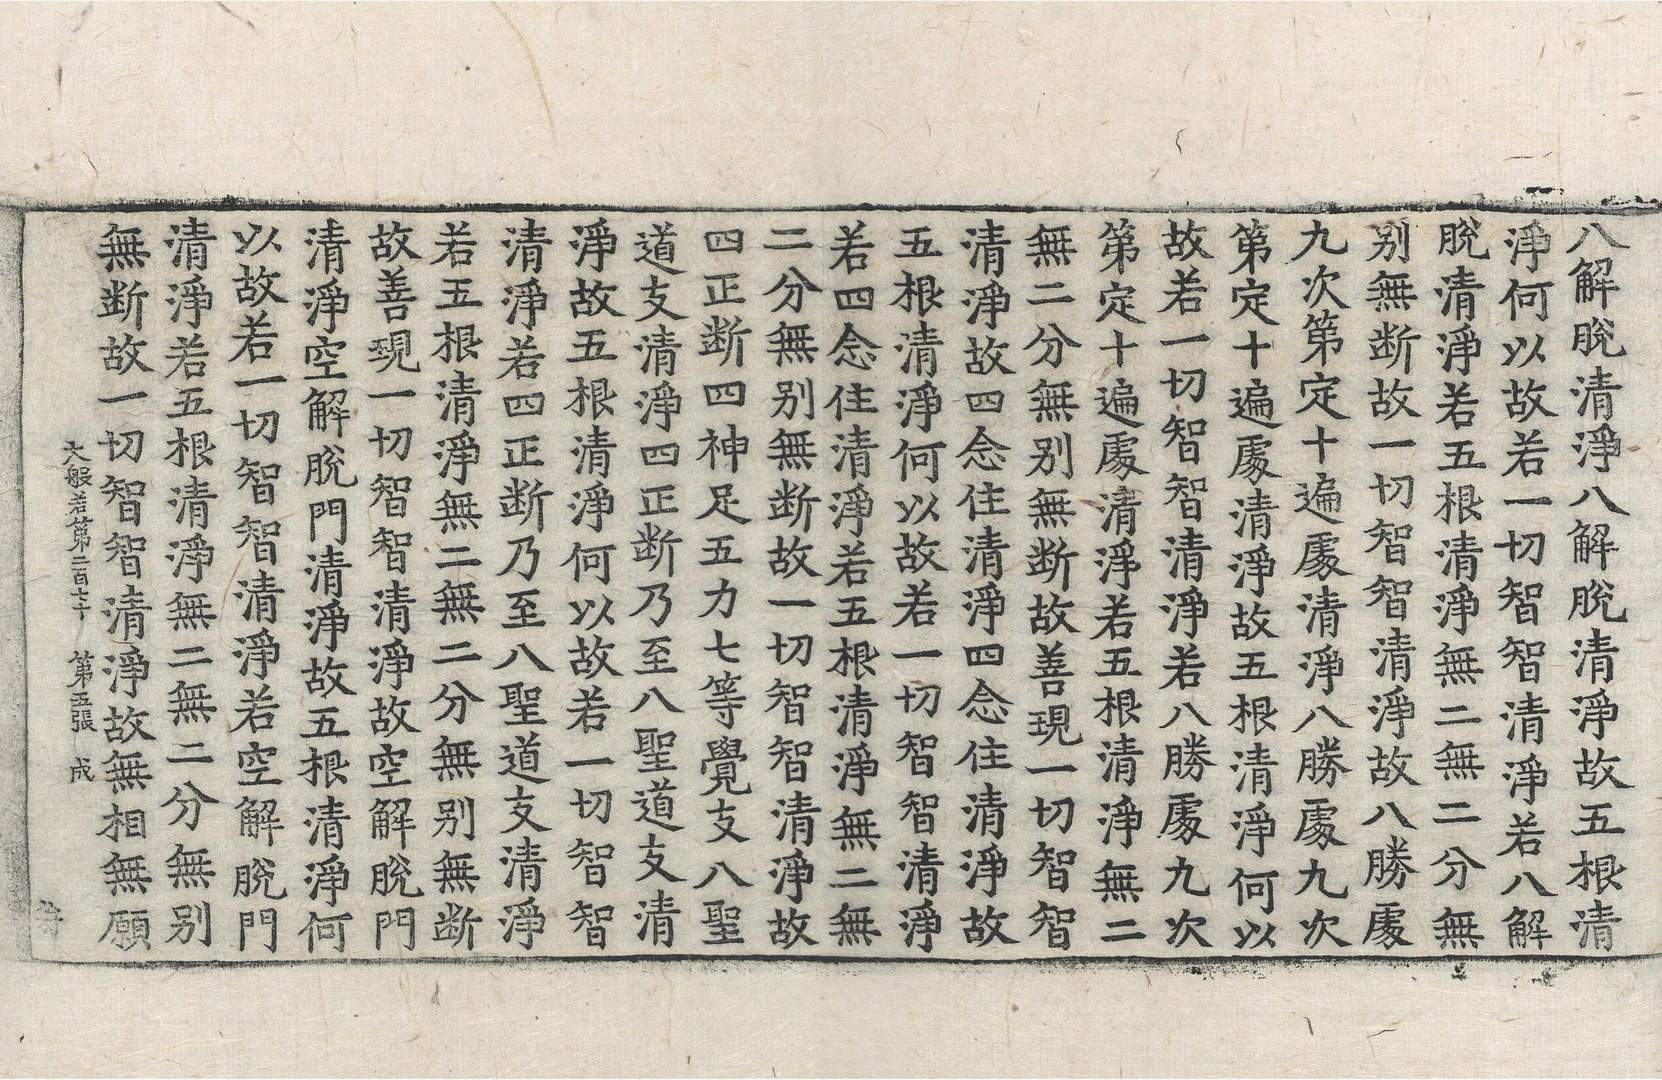 八解脫清淨八解脫清淨故五根清
淨何以故若一切智智清淨若八解
脫清淨若五根清淨無二無二分無
别無断故一切智智清淨故八勝處
九次第定十遍處清淨八勝處九次
第定十遍處清淨故五根清淨何以
故若一切智智清淨若八勝處九次
第定十遍處清淨若五根清淨無二
無二分無别無断故善現一切智智
清淨故四念住清淨四念住清淨故
五根清淨何以故若一切智智清淨
若四念住清淨若五根清淨無二無
二分無别無断故一切智智清淨故
四正断四神足五力七等覺支八聖
道支清淨四正断乃至八聖道支清
淨故五根清淨何以故若一切智智
清淨若四正断乃至八聖道支清淨
若五根清淨無二無二分無别無断
故善現一切智智清淨故空解脫門
清淨空解脫門清淨故五根清淨何
以故若一切智智清淨若空解脫門
清淨若五根清淨無二無二分無别
無断故一切智智清淨故無相無願
大般若第二百七十 第五張 成